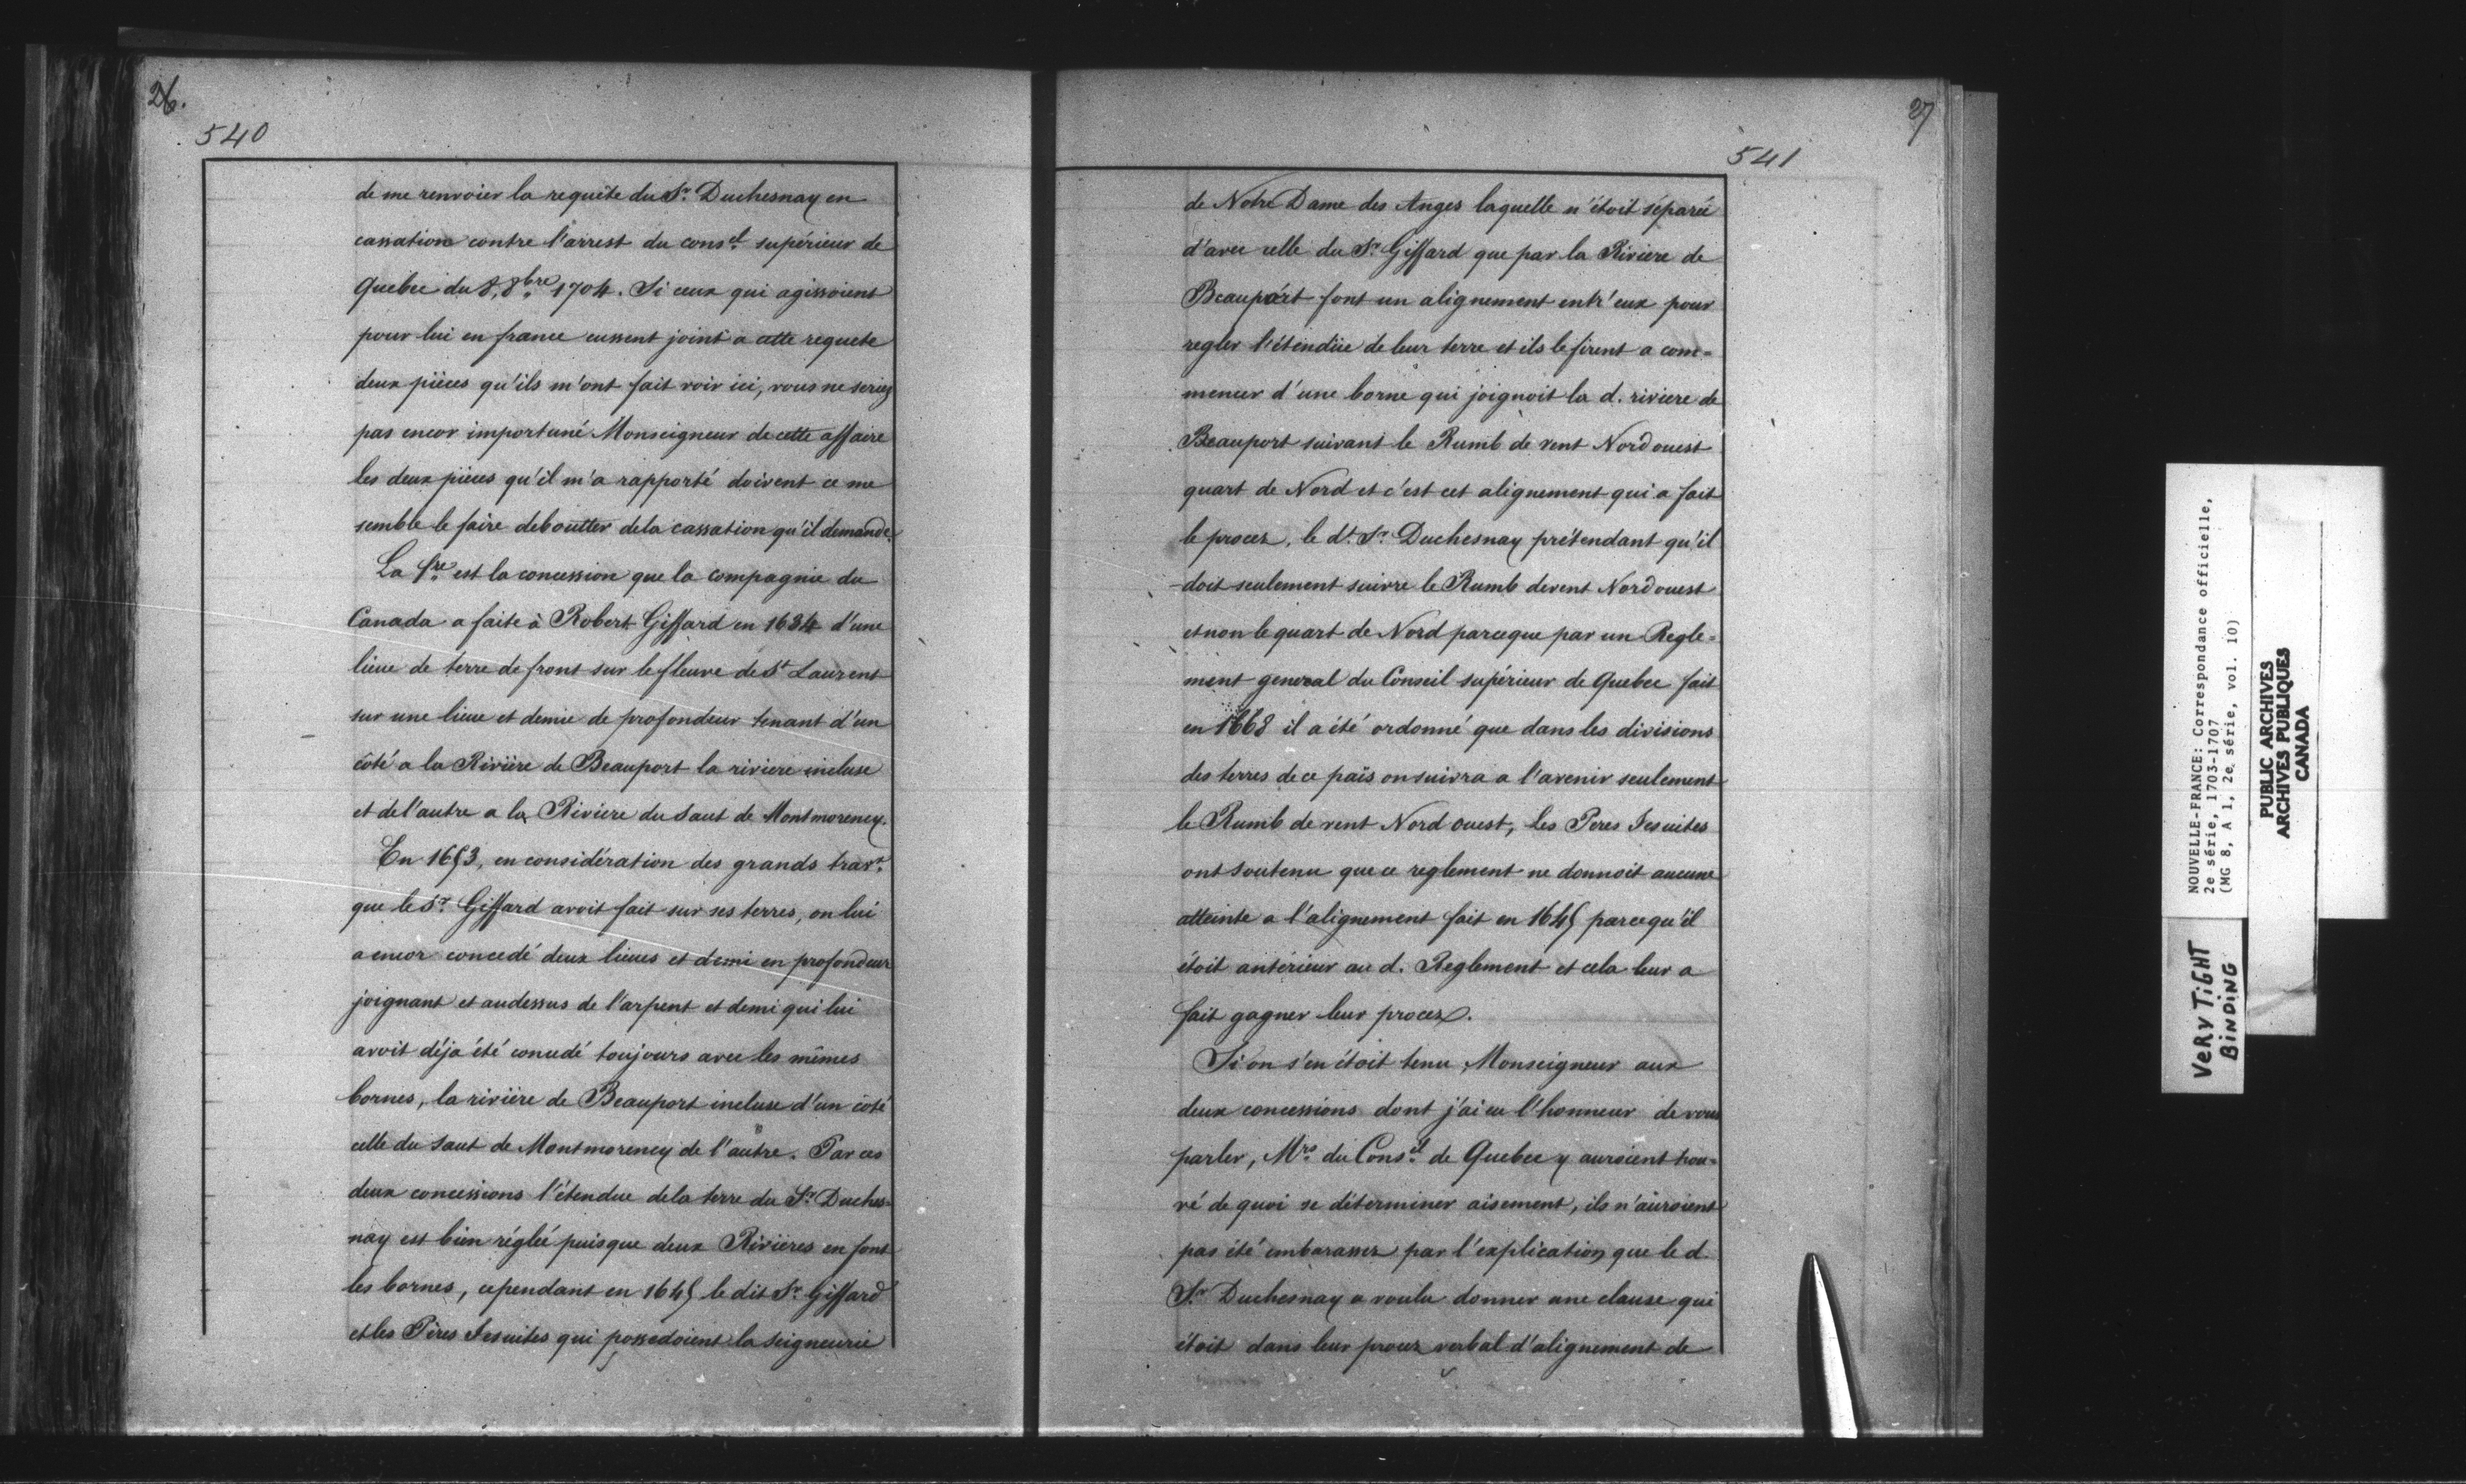 26.
540
de me renvoier la requête du Sr. Duchesnay en
cassation contre l'arrest du consel. supérieur de
Quebec du 8, 8bre. 1704. Si ceux qui agissoient
pour lui en france eussent joint a cette requete
deux pièces qu'ils m'ont fait voir ici, vous ne seriez
pas encor importuné Monseigneur de cette affaire
les deux pièces qu'il m'a rapporté doivent ce me
semble le faire deboutter de la cassation qu'il demande.
La 1re. est la concession que la compagnie du
Canada a faite à Robert Giffard en 1634 d'une
lieue de terre de front sur le fleuve de St Laurent
sur une lieue et demie de profondeur tenant d'un
côté a la Rivière de Beauport la riviere incluse
et de l'autre a la Riviere du Saut de Montmorency.
En 1653, en considération des grands travx.
que le Sr. Giffard avoit fait sur ses terres, on lui
a encor concedé deux lieues et demi en profondeur
joignant et audessus de l'arpent et demi qui lui
avoit déja été concedé toujours avec les mêmes
bornes, la rivière de Beauport incluse d'un côté
celle du Saut de Montmorency de l'autre. Par ces
deux concessions l'étendue de la terre du Sr. Duches=
nay est bien réglée puisque deux Rivières en font
les bornes, cependant en 1645 le dit Sr. Giffard
et les Pères Jesuites qui possedoient la Seigneurie
27
541
de Notre Dame des Anges laquelle n'étoit séparée
d'avec celle du Sr. Giffard que par la Riviere de
Beauport font un alignement entr'eux pour
regler l'étendüe de leur terre et ils le firent a com=
mencer d'une borne qui joignoit la d. riviere de
Beauport suivant le Rumb de vent Nord ouest
quart de Nord et c'est cet alignement qui a fait
le procez, le dt. Sr. Duchesnay prétendant qu'il
doit seulement suivre le Rumb de vent Nord ouest
et non le quart de Nord parceque par un Regle=
ment general du Conseil supérieur de Quebec fait
en 1668 il a été ordonné que dans les divisions
des terres de ce païs on suivra a l'avenir seulement
le Rumb de vent Nord ouest, les Peres Jesuites
ont soutenu que ce reglement ne donnoit aucune
atteinte a l'alignement fait en 1645 parcequ'il
étoit antérieur au d. Reglement et cela leur a
fait gagner leur procez.
Si on s'en étoit tenu, Monseigneur aux
deux concessions dont j'ai eu l'honneur de vous
parler, Mrs. du Consel. de Quebec y auroient trou=
vé de quoi se déterminer aisement, ils n'auroient
pas été embarassez par l'explication que le d.
Sr. Duchesnay a voulu donner une clause qui
étoit dans leur procez verbal d'alignement de
NOUVELLE-FRANCE: Correspondance officielle,
2e série, 1703-1707
(MG 8, A 1, 2e série, vol. 10)
PUBLIC ARCHIVES
ARCHIVES PUBLIQUES
CANADA
VERY TIGHT
BINDING